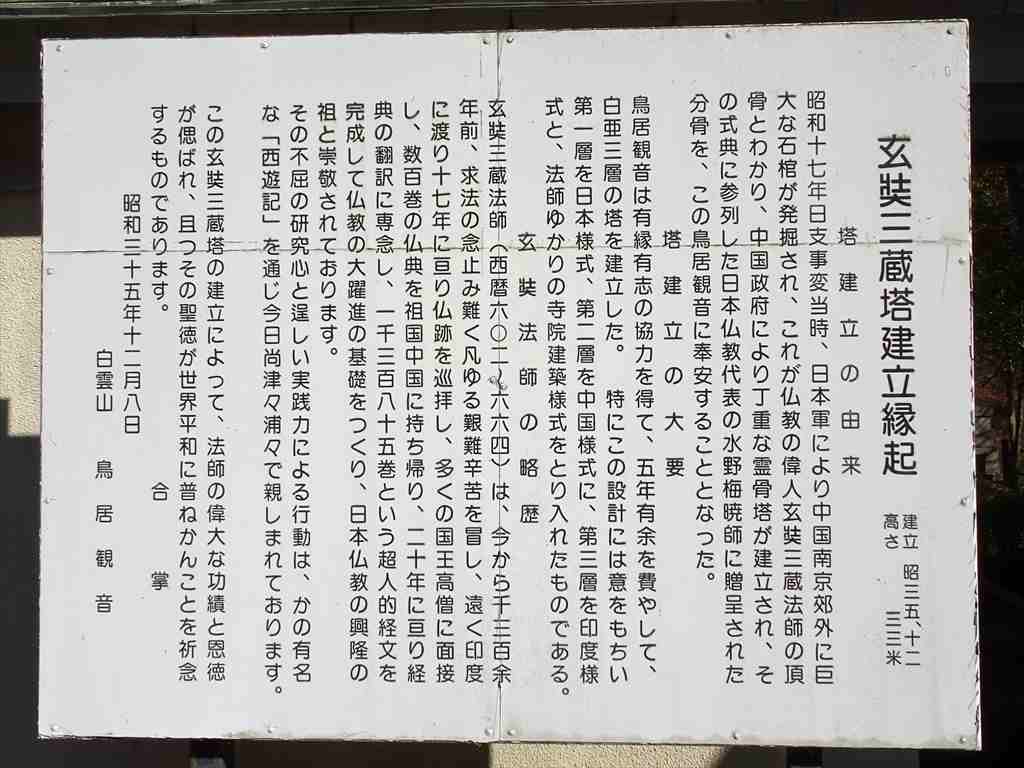 玄奘三蔵塔建立縁起
建立 昭三五、十二
高さ 三三米
塔建立の由来
昭和十七年日支事変当時、日本軍により中国南京郊外に巨
大な石棺が発掘され、これが仏教の偉人玄奘三蔵法師の頂
骨とわかり、中国政府により丁重な霊骨塔が建立され、そ
の式典に参列した日本仏教代表の水野梅暁師に贈呈された
分骨を、この鳥居観音に奉安することとなった。
塔建立の大要
鳥居観音は有縁有志の協力を得て、五年有余を費やして、
白亜三層の塔を建立した。 特にこの設計には意をもちい
第一層を日本様式、第二層を中国様式に、第三層を印度様
式と、法師ゆかりの寺院建築様式をとり入れたものである。
玄奘法師の略歴
玄奘三蔵法師(西暦六〇二〜六六四)は、今から千三百余
年前、求法の念止み難く凡ゆる艱難辛苦を冒し、遠く印度
に渡り十七年に亘り仏跡を巡拝し、多くの国王高僧に面接
し、数百巻の仏典を祖国中国に持ち帰り、二十年に亘り経
典の翻訳に専念し、一千三百八十五巻という超人的経文を
完成して仏教の大躍進の基礎をつくり、日本仏教の興隆の
祖と崇敬されております。
その不屈の研究心と逞しい実践力による行動は、かの有名
な「西遊記」を通じ今日尚津々浦々で親しまれております。
この玄奘三蔵塔の建立によって、法師の偉大な功績と恩徳
が偲ばれ、且つその聖徳が世界平和に普ねかんことを祈念
するものであります。 合掌
昭和三十五年十二月八日
白雲山 鳥居観音